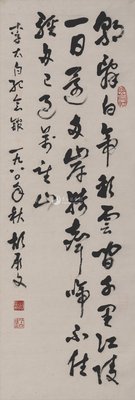 朝辭白帝彩雲間千里江陵
一日還兩岸猿聲啼不住
輕舟已過萬重山
李太白 一九八〇年秋